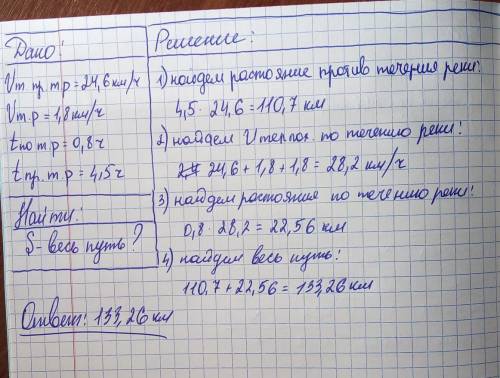 Дано:
Vт пр. т р = 24,6 км/ч
Vт. р = 1,8 км/ч
t по т. р = 0,8 ч
t пр. т. р = 4,5 ч
Найти:
S - весь путь?
Ответ: 133,26 км
Решение:
1) найдем растояние против течения реки:
4,5 · 24,6 = 110,7 км
2) найдем V теплох. по течению реки:
24,6 + 1,8 + 1,8 = 28,2 км/ч
3) найдем растояния по течению реки:
0,8 · 28,2 = 22,56 км
4) найдем весь путь:
110,7 + 22,56 = 133,26 км